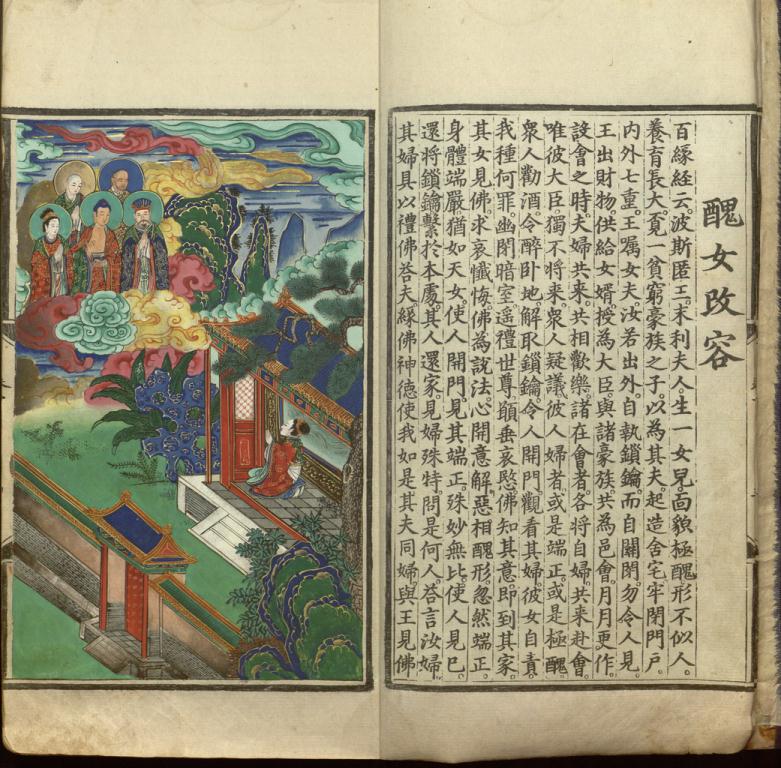 醜女改容
百緣經云。波斯匿王。末利夫人生一女兒。面貌極醜。形不似人。
養育長大。覓一貧窮豪族之子。以為其夫。起造舍宅。牢閉門戶。
內外七重。王囑女夫。汝若出外。自執鎖鑰。而自關閉。勿令人見。
王出財物。供給女婿。授為大臣。與諸豪族。共為邑會。月月更作。
設會之時。夫婦共來。共相歡樂。諸在會者。各將自婦。共來赴會。
唯彼大臣。獨不將來。眾人疑議。彼人婦者。或是端正。或是極醜。
眾人勸酒。令醉臥地。解取鎖鑰。令人開門。觀看其婦。彼女自責。
我種何罪。幽閉暗室。遙禮世尊。願垂哀愍。佛知其意。即到其家。
其女見佛。求哀懺悔。佛為說法。心開意解。惡相醜形。忽然端正。
身體端嚴。猶如天女。使人開門。見其端正。殊妙無比。使人見已。
還將鎖鑰。繫於本處。其人還家。見婦殊特。問是何人。答言汝婦。
其婦具以禮佛答夫。緣佛神德。使我如是。其夫同婦。與王見佛